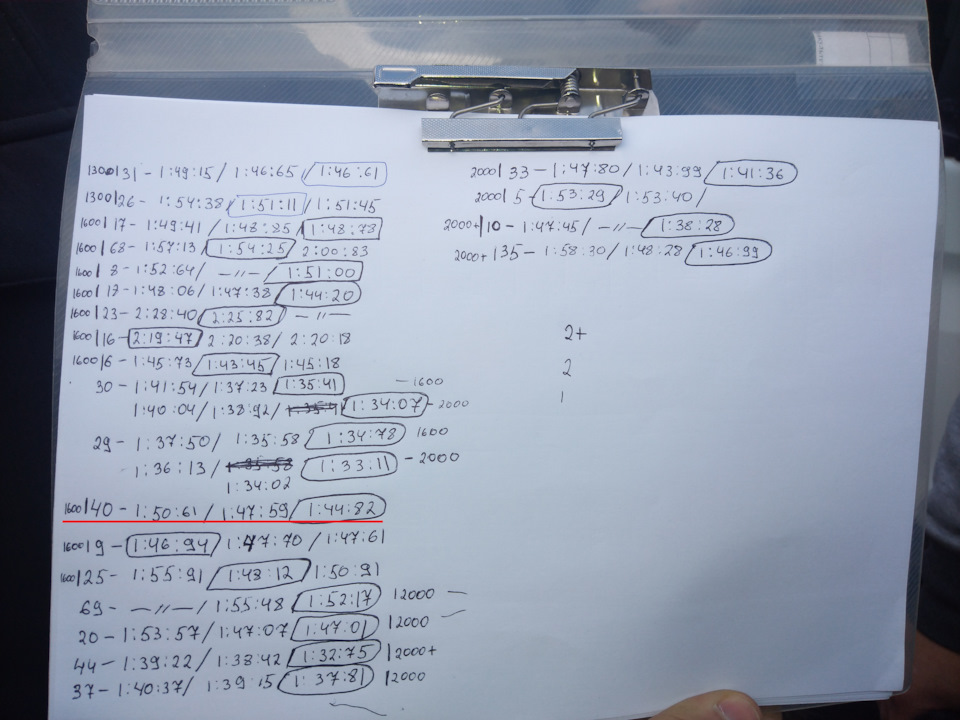 1300/31 - 1:49:15 / 1:46:65 1:46:61
1300/26 - 1:54:38 / 1:51:11 / 1:51:45
1600/17 - 1:49:41 / 1:48:85 / 1:48:78
1600/68 - 1:57:13 / 1:54:25 / 2:00:83
1600/8 - 1:52:64 / -//- 1:51:00
1600/12 - 1:48:06 / 1:47:38 1:44:20
1600/23 - 2:28:40 2:25:82 -//-
1600/16 - 2:19:47 2:20:38 / 2:20:18
1600/6 - 1:45:73 / 1:43:45 1:45:18
30 - 1:41:54 / 1:37:23 1:35:41 - 1600
1:40:04 / 1:38:92 / 1:34:07 - 2000
29 - 1:37:50 / 1:35:58 1:34:78 1600
1:36:13 / 1:35:58 1:33:11 - 2000
1:34:02
1600/40 - 1:50:61 / 1:47:59 / 1:44:82
1600/9 - 1:46:94 / 1:47:70 / 1:47:61
1600/25 - 1:55:91 / 1:43:12 1:50:91
69 - -//- / 1:55:48 1:52:17 /2000
20 - 1:53:57 / 1:47:07 1:47:01 /2000
44 - 1:39:22 / 1:38:42 1:32:75 /2000+
37 - 1:40:37 / 1:39:15 1:37:81 /2000
2000/33 - 1:47:80 / 1:43:99 1:41:36
2000/5 - 1:53:29 / 1:53:40 /
2000+/10 - 1:47:45 / -//- 1:38:28
2000+/35 - 1:58:30 / 1:48:28 1:46:99
2+
2
1